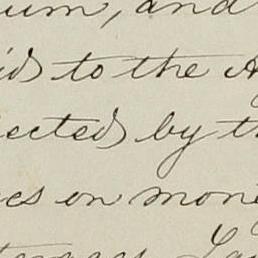 um, and
id to the A
ected by th
es on mone